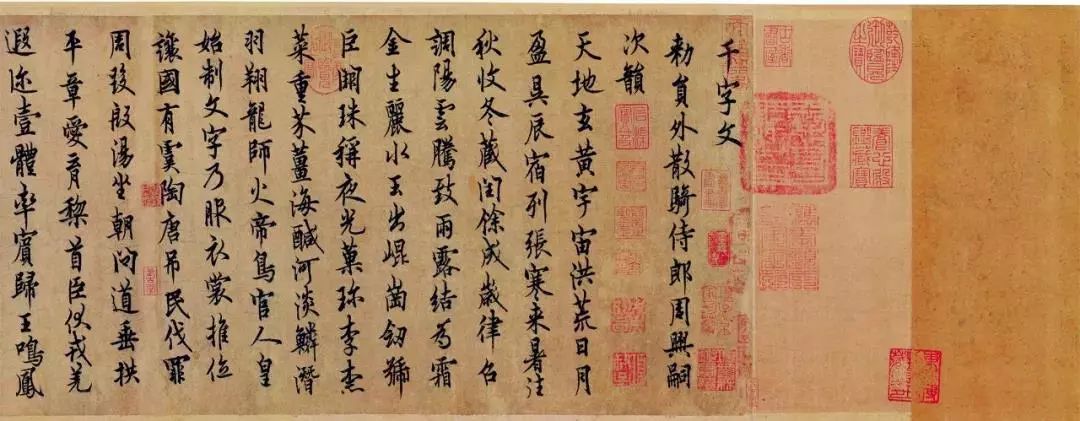 千字文
勑員外散騎侍郎周興嗣
次韻
天地玄黃宇宙洪荒日月
盈昃辰宿列張寒来暑往
秋收冬藏閏餘成歲律呂
調陽雲騰致雨露結為霜
金生麗水玉出崐崗劒號
巨闕珠稱夜光菓珎李柰
菜重芥薑海醎河淡鱗潛
羽翔龍師火帝鳥官人皇
始制文字乃服衣裳推位
讓國有虞陶唐吊民伐罪
周發殷湯坐朝問道垂拱
平章愛育黎首臣伏戎羌
遐迩壹體率賓歸王鳴鳳